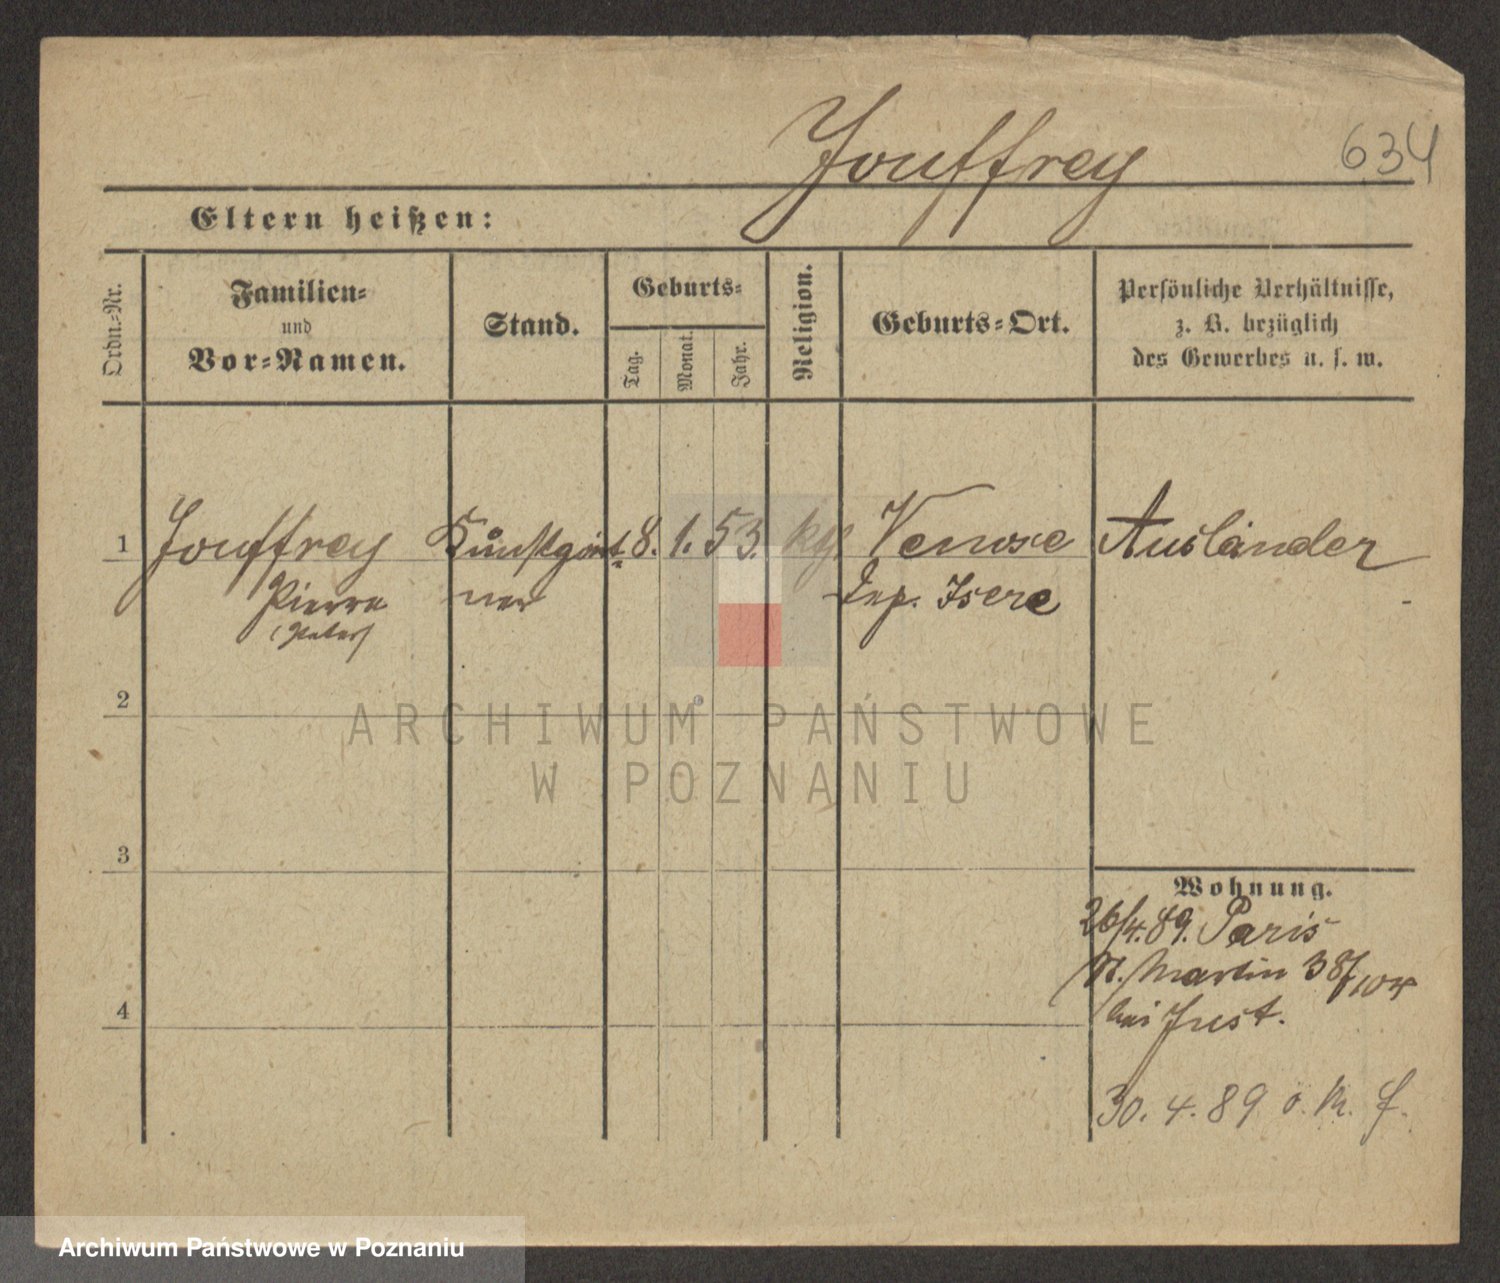 Jouffrey
634
Eltern heißen:
Ordn.-Nr.
Familien-
und
Vor-Namen.
Stand.
Geburts-
Tag.
Monat.
Jahr.
Religion.
Geburts-Ort.
Persönliche Verhältnisse,
z. B. bezüglich
des Gewerbes u. s. w.
1 Jouffrey Kunstgärt- 8. 1. 53. kg. Venose Ausländer
Pierre ner Dep. Isere
(Peter)
2
3
4
Wohnung.
26/4.89. Paris
St. Martin 38
bei Just.
30. 4. 89 o. M. f.
ARCHIWUM PAŃSTWOWE
W POZNANIU
Archiwum Państwowe w Poznaniu